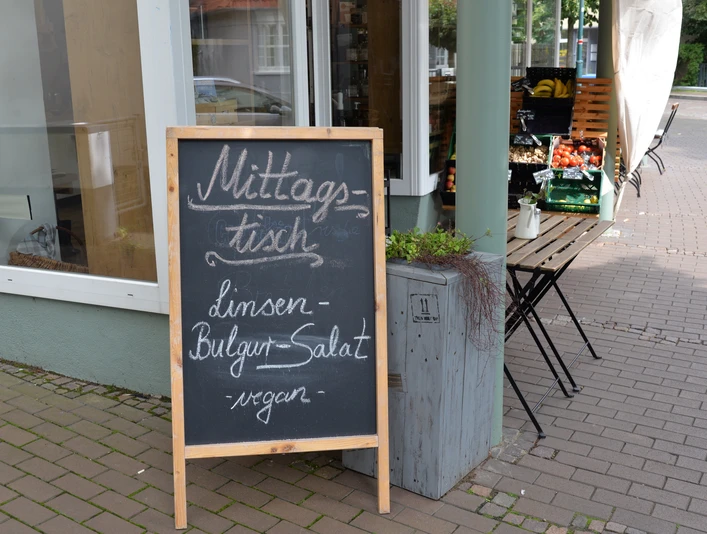 Mittags-
tisch
Linsen-
Bulgur-Salat
-vegan-